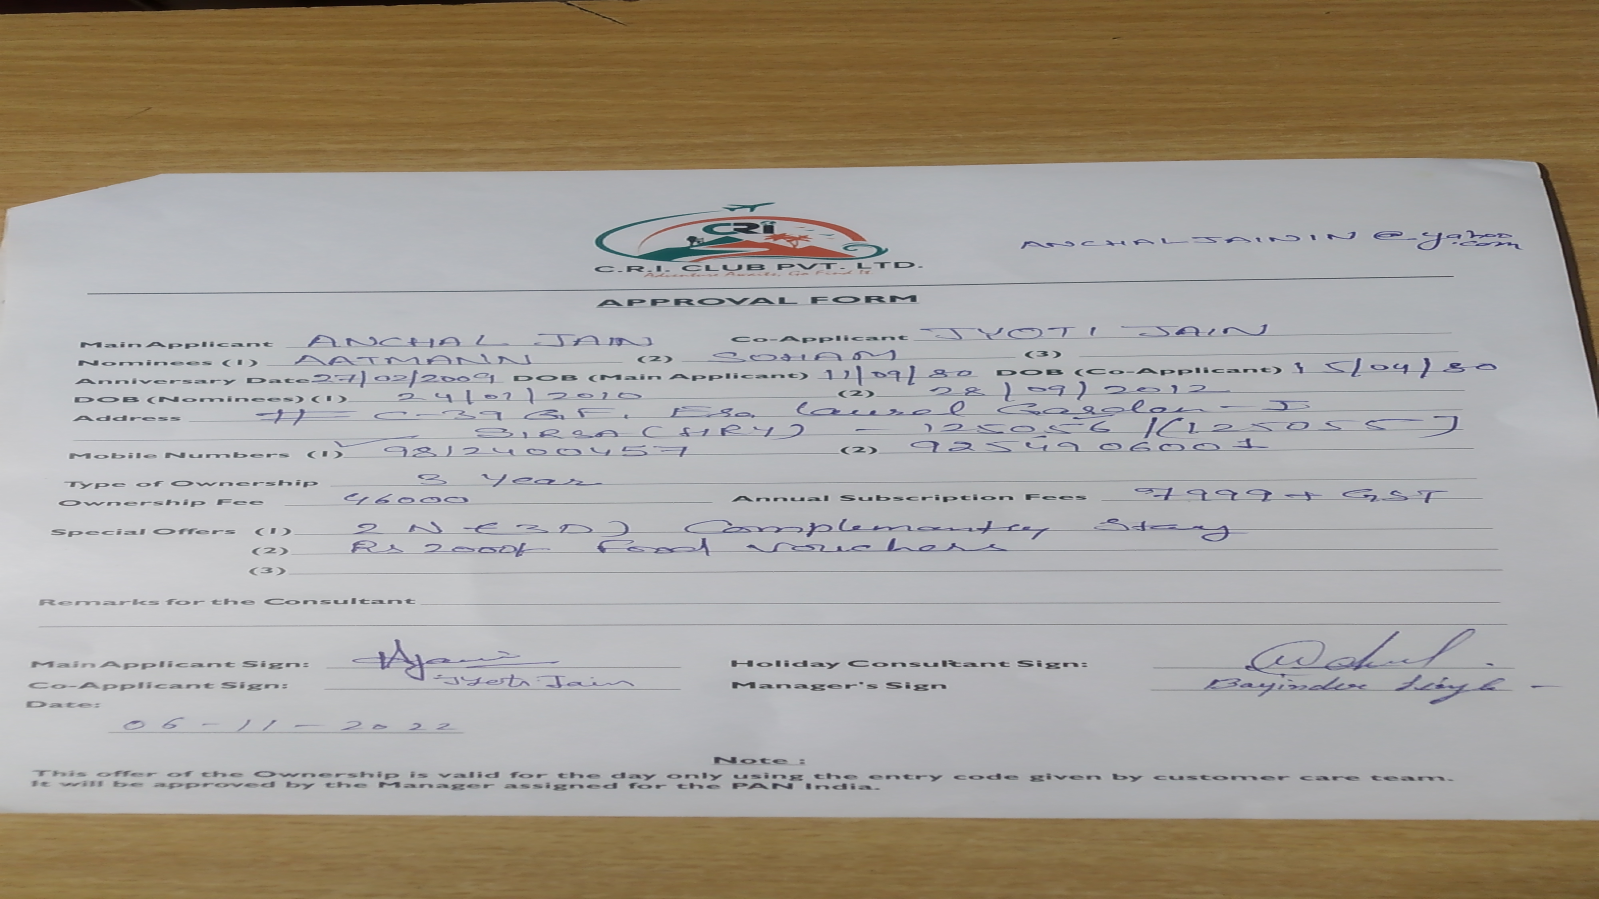 CRI
C.R.I. CLUB PVT. LTD.
Adventure Awaits, Go Find It
ANCHALJAININ@yahoo.com
APPROVAL FORM
Main Applicant ANCHAL JAIN Co-Applicant JYOTI JAIN
Nominees (1) AATMANN (2) SOHAM (3)
Anniversary Date 27/02/2009 DOB (Main Applicant) 11/09/80 DOB (Co-Applicant) 15/04/80
DOB (Nominees) (1) 24/01/2010 (2) 28/09/2012
Address # C-39 G.F. Laurel Garden - I
SIRSA (HRY) - 125056 / (125055)
Mobile Numbers (1) 9812400457 (2) 9254906001
Type of Ownership 3 Year
Ownership Fee 46000 Annual Subscription Fees 7999 + GST
Special Offers (1) 2 N (3D) Complemantry Stay
(2) Rs 2000/- Food Vouchers
(3)
Remarks for the Consultant
Main Applicant Sign: Holiday Consultant Sign:
Co-Applicant Sign: Jyoti Jain Manager's Sign
Date:
06-11-2022
Note :
This offer of the Ownership is valid for the day only using the entry code given by customer care team.
It will be approved by the Manager assigned for the PAN India.